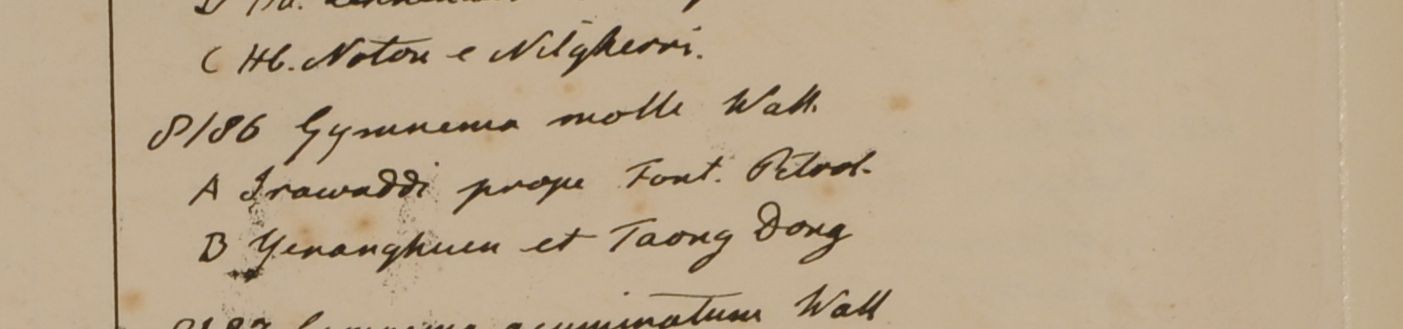 C Hb. Noton e Nilgherri.
8186 Gymnema molle Wall.
A Irawaddi prope Font. Petrol.
B Yenanghuen et Taong Dong
8187 Gymnema acuminatum Wall